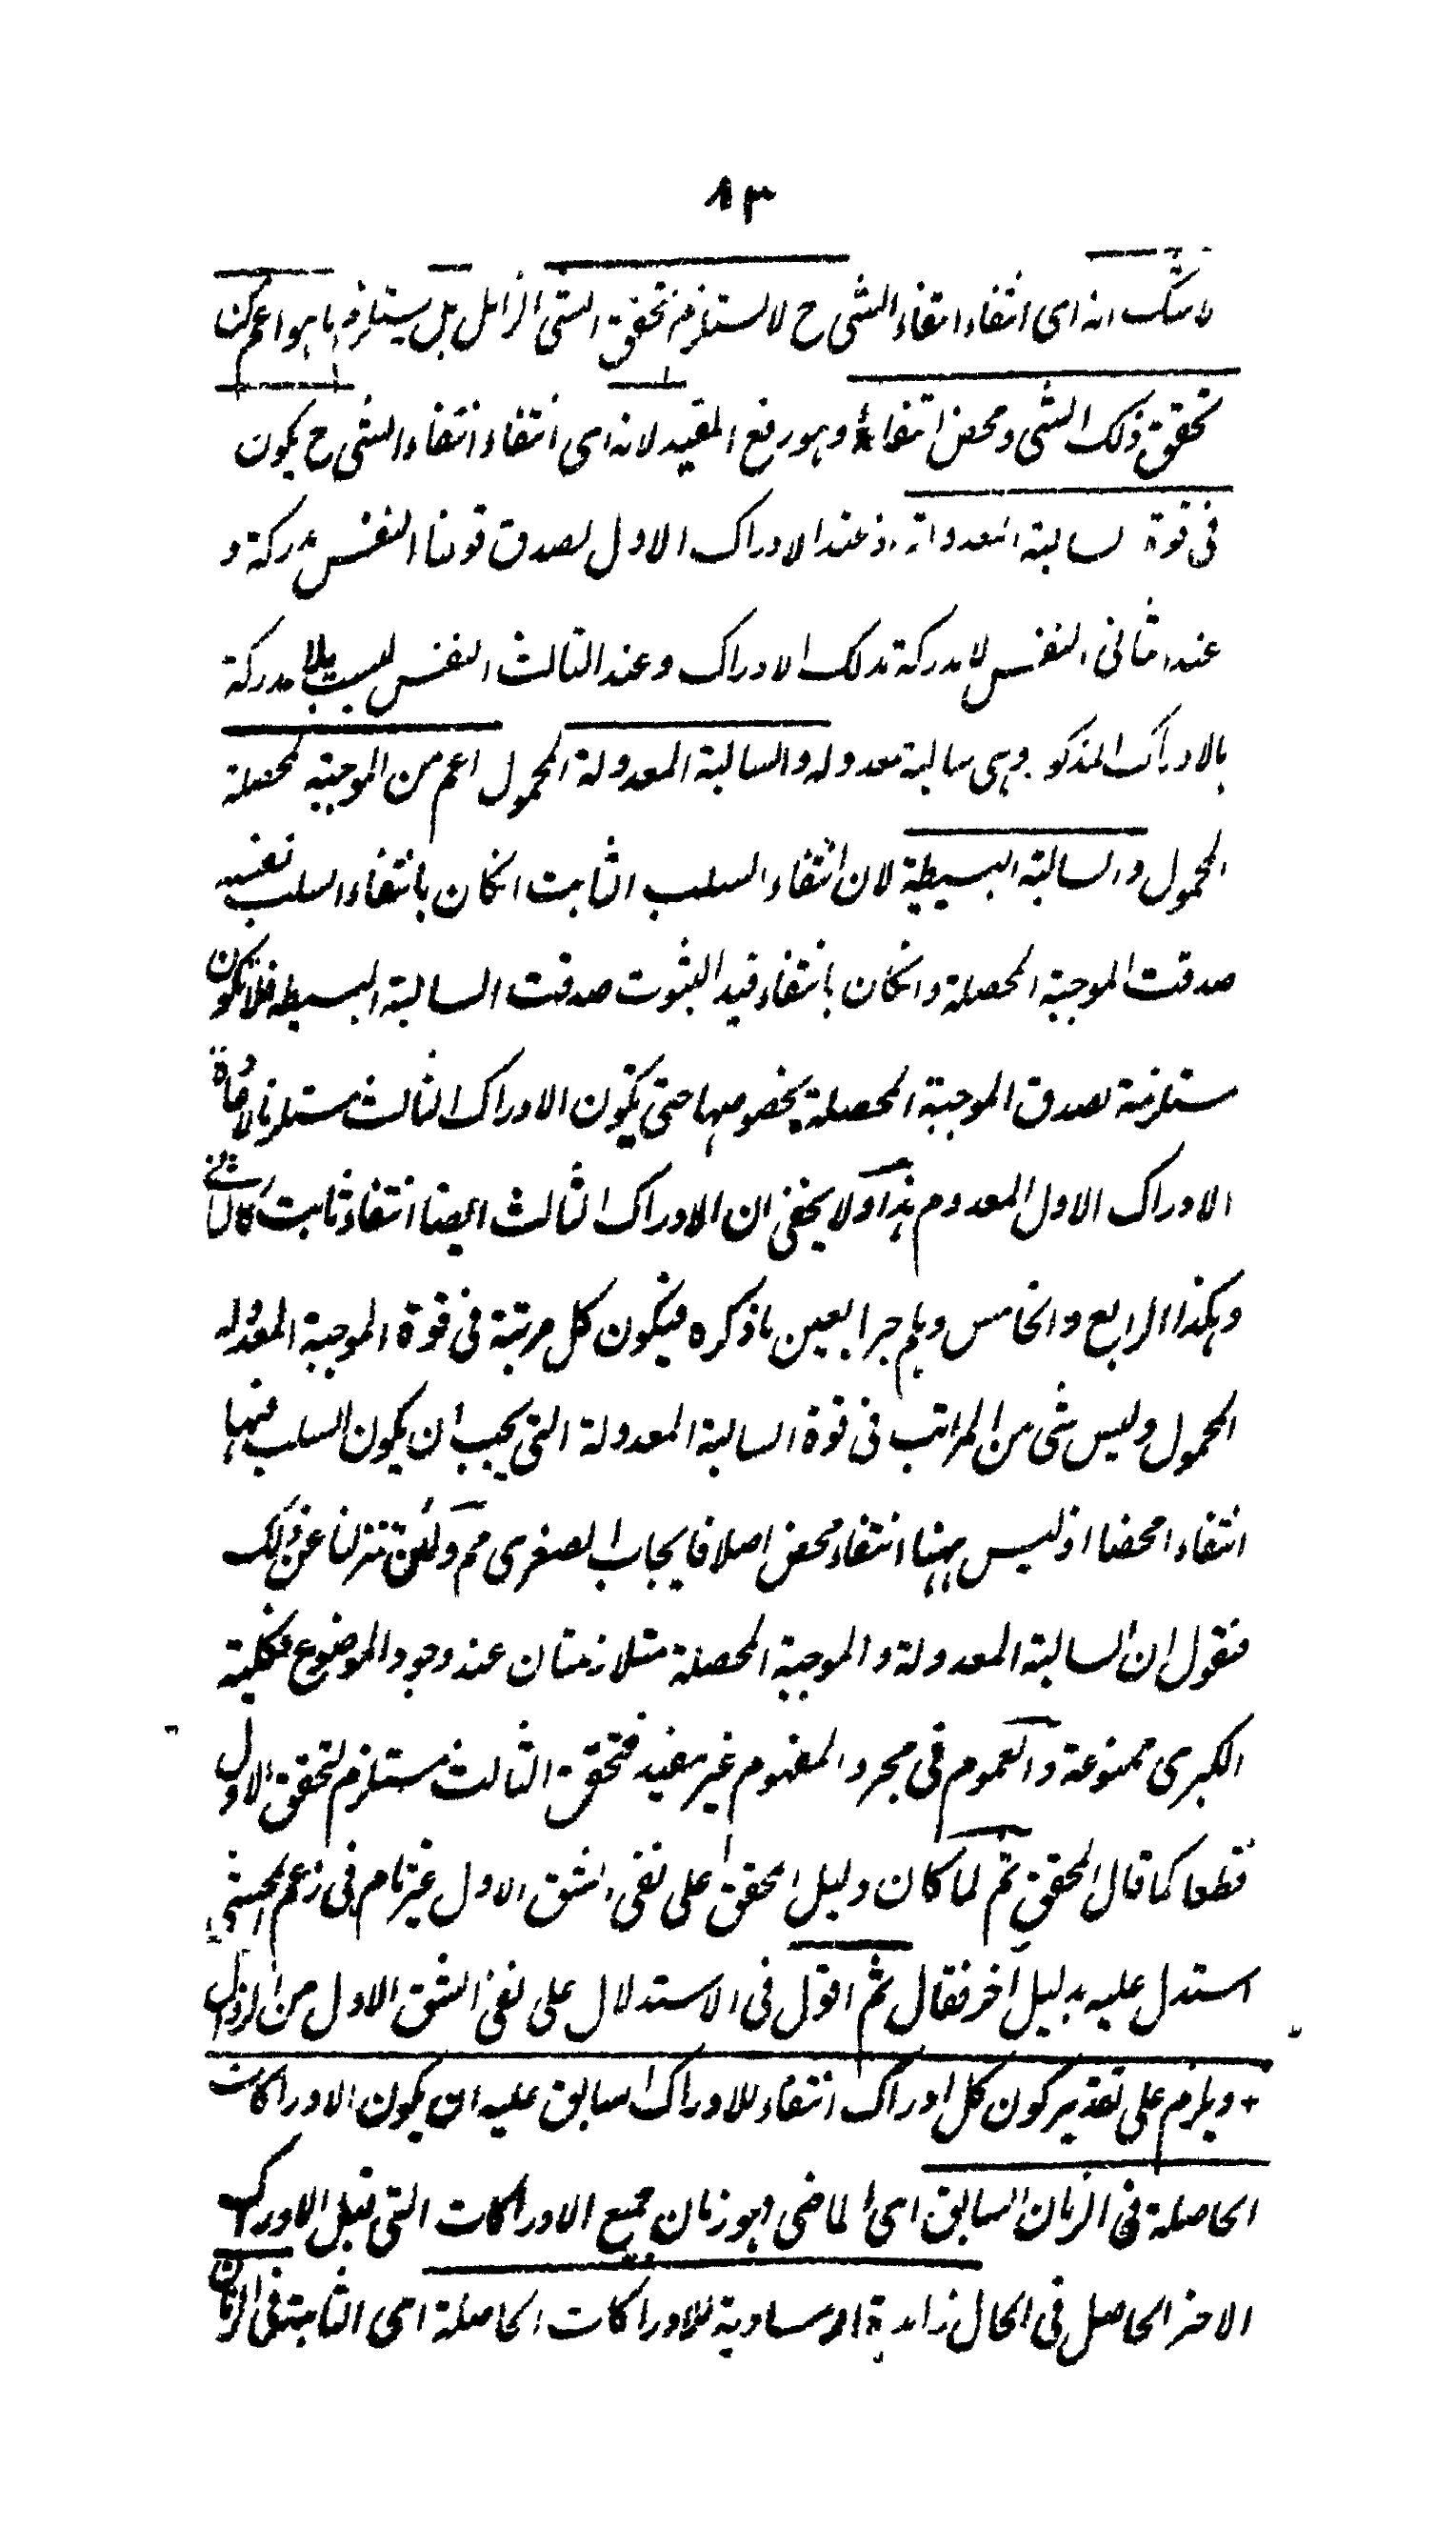 ٨٣
لا شك انه اى انتفاء انتفاء الشى ح لا يستلزم تحقق الشى الزائل بل يستلزم ما هو اعم من
تحقق ذلك الشى و محض انتفائه وهو رفع المقيد لانه اى انتفاء انتفاء الشى ح يكون
فى قوة سالبة المعدولة اذ عند الادراك الاول يصدق قولنا النفس مدركة و
عند الثانى النفس لا مدركة بذلك الادراك وعند الثالث النفس ليست بلا مدركة
بالادراك المذكور وهى سالبة معدولة والسالبة المعدولة المحمول اعم من الموجبة المحصلة
المحمول والسالبة البسيطة لان انتفاء السلب الثابت انكان بانتفاء السلب نفسه
صدقت الموجبة المحصلة وانكان بانتفاء قيد الثبوت صدقت السالبة البسيطة فلا تكون
مستلزمة لصدق الموجبة المحصلة بخصوصها حتى يكون الادراك الثالث مستلزما لاعادة
الادراك الاول المعدوم هذا ولا يخفى ان الادراك الثالث ايضا انتفاء ثابت كالثانى
وهكذا الرابع والخامس وهلم جرا بعين ما ذكره فيكون كل مرتبة فى قوة الموجبة المعدولة
المحمول وليس شى من المراتب فى قوة السالبة المعدولة التى يجب ان يكون السلب فيها
انتفاء امحضا اذ ليس ههنا انتفاء محض اصلا فايجاب الصغرى مم ولئن تنزلنا عن ذلك
فنقول ان السالبة المعدولة والموجبة المحصلة متلازمتان عند وجود الموضوع فكلية
الكبرى ممنوعة والعموم فى مجرد المفهوم غير مفيد فتحقق الثالث مستلزم لتحقق الاول
قطعا كما قال المحقق ثم لما كان دليل المحقق على نفى الشق الاول غير تام فى زعم المحشى
استدل عليه بدليل آخر فقال ثم اقول فى الاستدلال على نفى الشق الاول من الزوال
+ ويلزم على تقدير كون كل ادراك انتفاء للادراك السابق عليه ان يكون الادراكات
الحاصلة فى الزمان السابق اى الماضى وهو زمان جميع الادراكات التى قبل الادراك
الاخر الحاصل فى الحال زائدة او مساوية للادراكات الحاصلة اى الثابتة فى الزمان